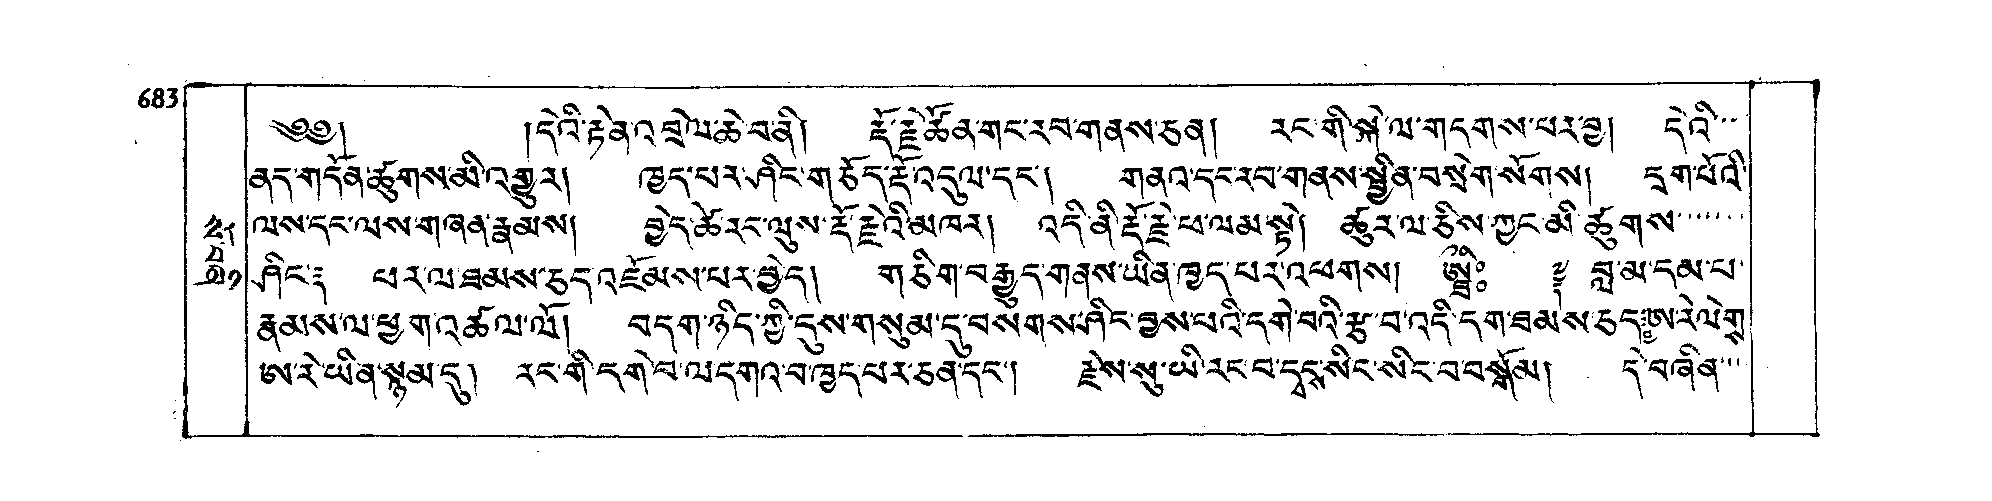 683
༄༅། །དེའི་རྟེན་འབྲེལ་ཆེ་བ་ནི། རྡོ་རྗེ་ཚོན་གང་རབ་གནས་ཅན། རང་གི་སྐེ་ལ་གདགས་པར་བྱ། དེའི་
ནད་གདོན་ཚུགས་མི་འགྱུར། ཁྱད་པར་ཤིང་གཅོད་རྡོ་འདུལ་དང་། གནའ་དང་རབ་གནས་སྦྱིན་བསྲེག་སོགས། དྲག་པོའི་
ལས་དང་ལས་གཞན་རྣམས། བྱེད་ཚེ་རང་ལུས་རྡོ་རྗེའི་མཁར། འདི་ནི་རྡོ་རྗེ་ཕ་ལམ་སྟེ། ཚུར་ལ་ཅིས་ཀྱང་མི་ཚུགས་
ཤིང་༔ ཕར་ལ་ཐམས་ཅད་འཇོམས་པར་བྱེད། གཅིག་བརྒྱུད་གནས་ཡིན་ཁྱད་པར་འཕགས། བླ་མ་དམ་པ་
རྣམས་ལ་ཕྱག་འཚལ་ལོ། བདག་ཉིད་ཀྱི་དུས་གསུམ་དུ་བསགས་ཤིང་བྱས་པའི་དགེ་བའི་རྩ་བ་འདི་དག་ཐམས་ཅད་ཨ་རེ་ལེགྶ་
ཨ་རེ་ཡིན་སྙམ་དུ། རང་གི་དགེ་བ་ལ་དགའ་བ་ཁྱད་པར་ཅན་དང་། རྗེས་སུ་ཡི་རང་བ་དྭངས་སིང་སིང་བ་བསྒོམ། དེ་བཞིན་